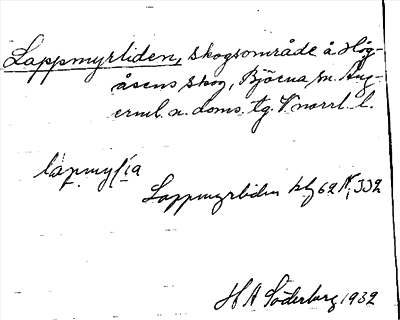 Lappmyrliden, skogsområde å Hög-
åsens skog, Björna sn. Ång-
erml. n. doms. tg. V norrl. l.
lapmyʃia
Lappmyrliden blg 62 IV, J32
H A Söderberg 1932